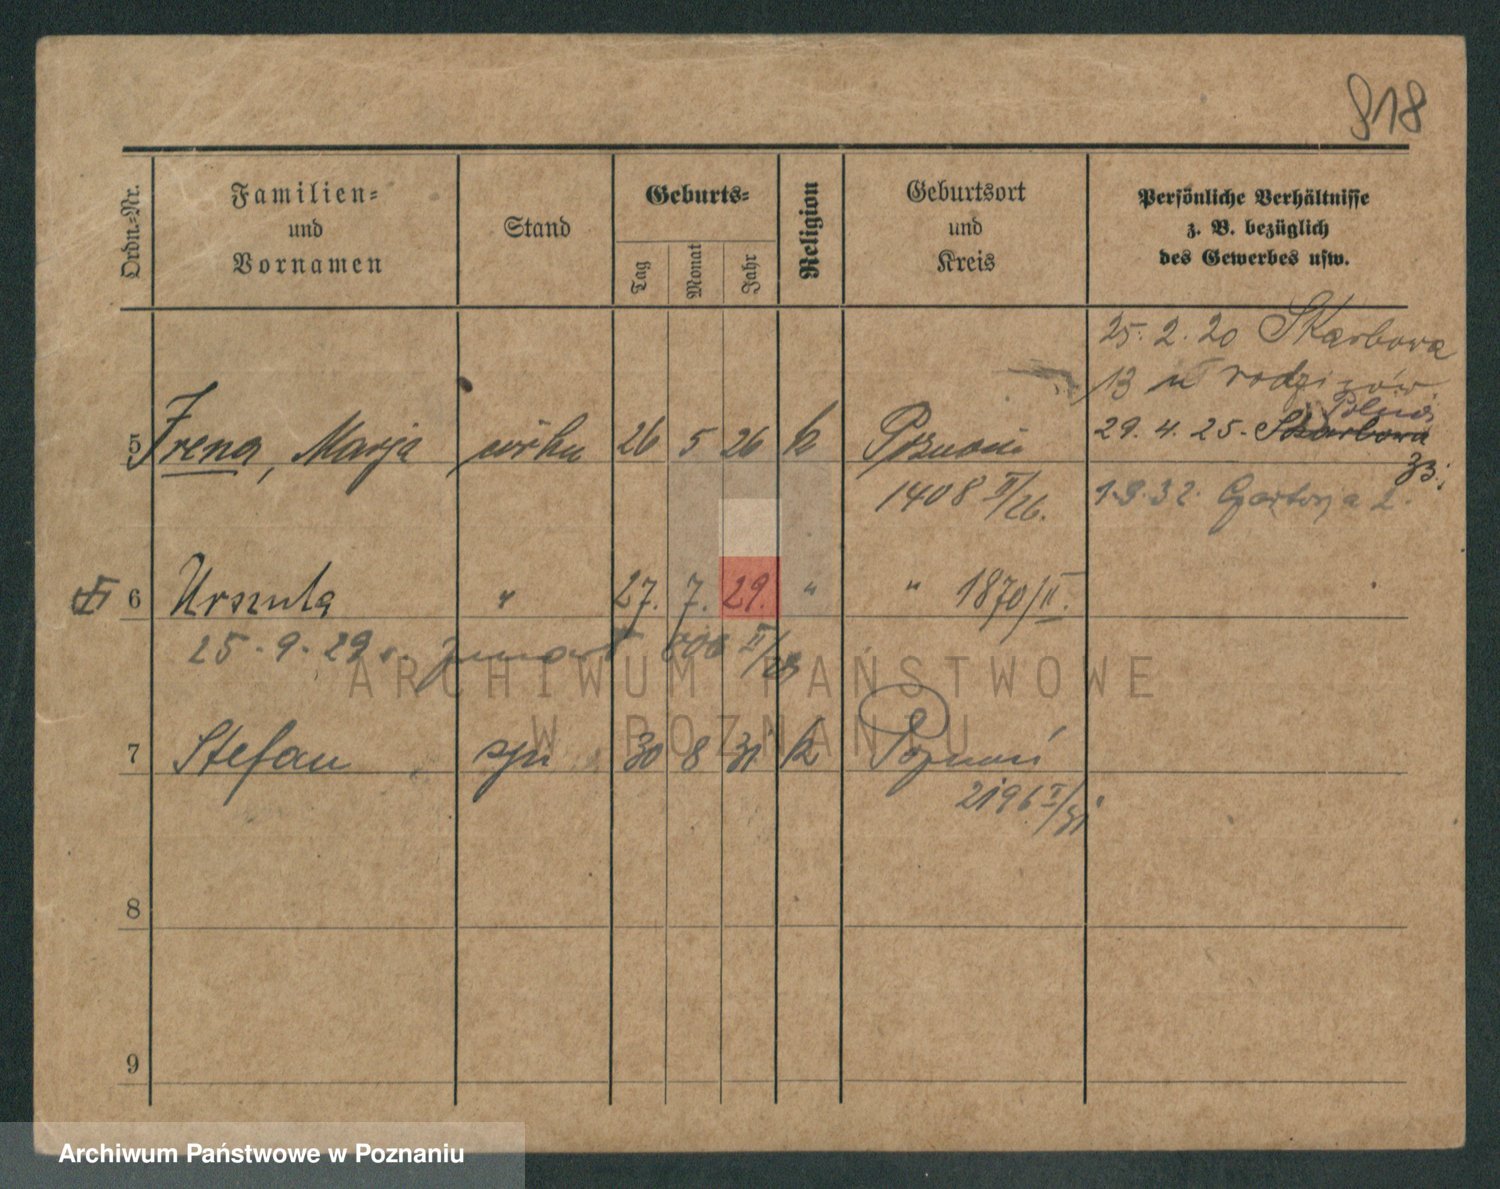 818
Ordn.-Nr.
Familien-
und
Vornamen
Stand
Geburts-
Tag
Monat
Jahr
Religion
Geburtsort
und
Kreis
Persönliche Verhältnisse
z. B. bezüglich
des Gewerbes usw.
25. 2. 20 Skarbowa
13 u rodziców
5 Irena, Marja córka 26 5 26 k Poznań 29. 4. 25. Skarbowa
33.
1408 II/26. 1.9.32.
6 Urszula " 27. 7. 29. " " 1870/II.
25. 9. 29 II/29
7 Stefan syn 30 8 31 k Poznań
2196 I/31
8
9
ARCHIWUM PAŃSTWOWE
W POZNANIU
Archiwum Państwowe w Poznaniu